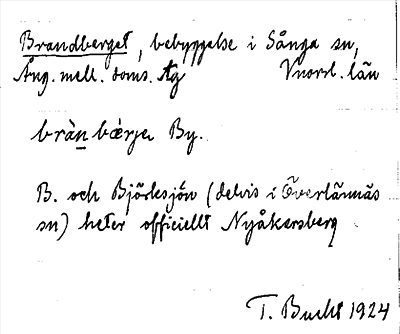 Brandberget, bebyggelse i Sånga sn,
Ång. mell. doms. Åg Vnorrl. län
brànbǽrje By.
B. och Björksjön (delvis i Överlännäs
sn) heter officiellt Nyåkersberg
T. Bucht 1924